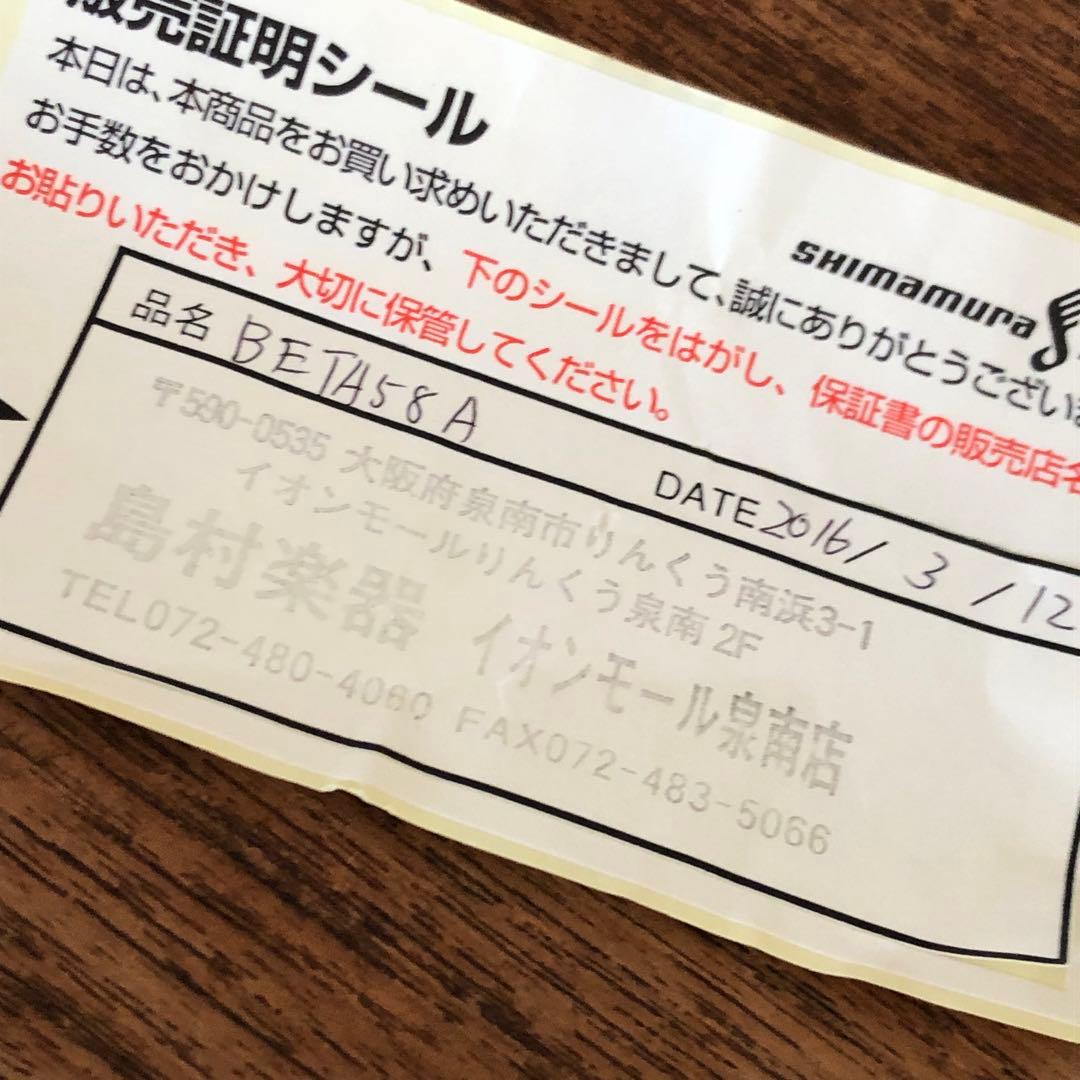 販売証明シール
本日は、本商品をお買い求めいただきまして、誠にありがとうござい
お手数をおかけしますが、下のシールをはがし、保証書の販売店名
お貼りいただき、大切に保管してください。
SHIMAMURA
品名 BETA58A
DATE 2016/3/12
〒590-0535 大阪府泉南市りんくう南浜3-1
イオンモールりんくう泉南2F
島村楽器 イオンモール泉南店
TEL072-480-4060 FAX072-483-5066